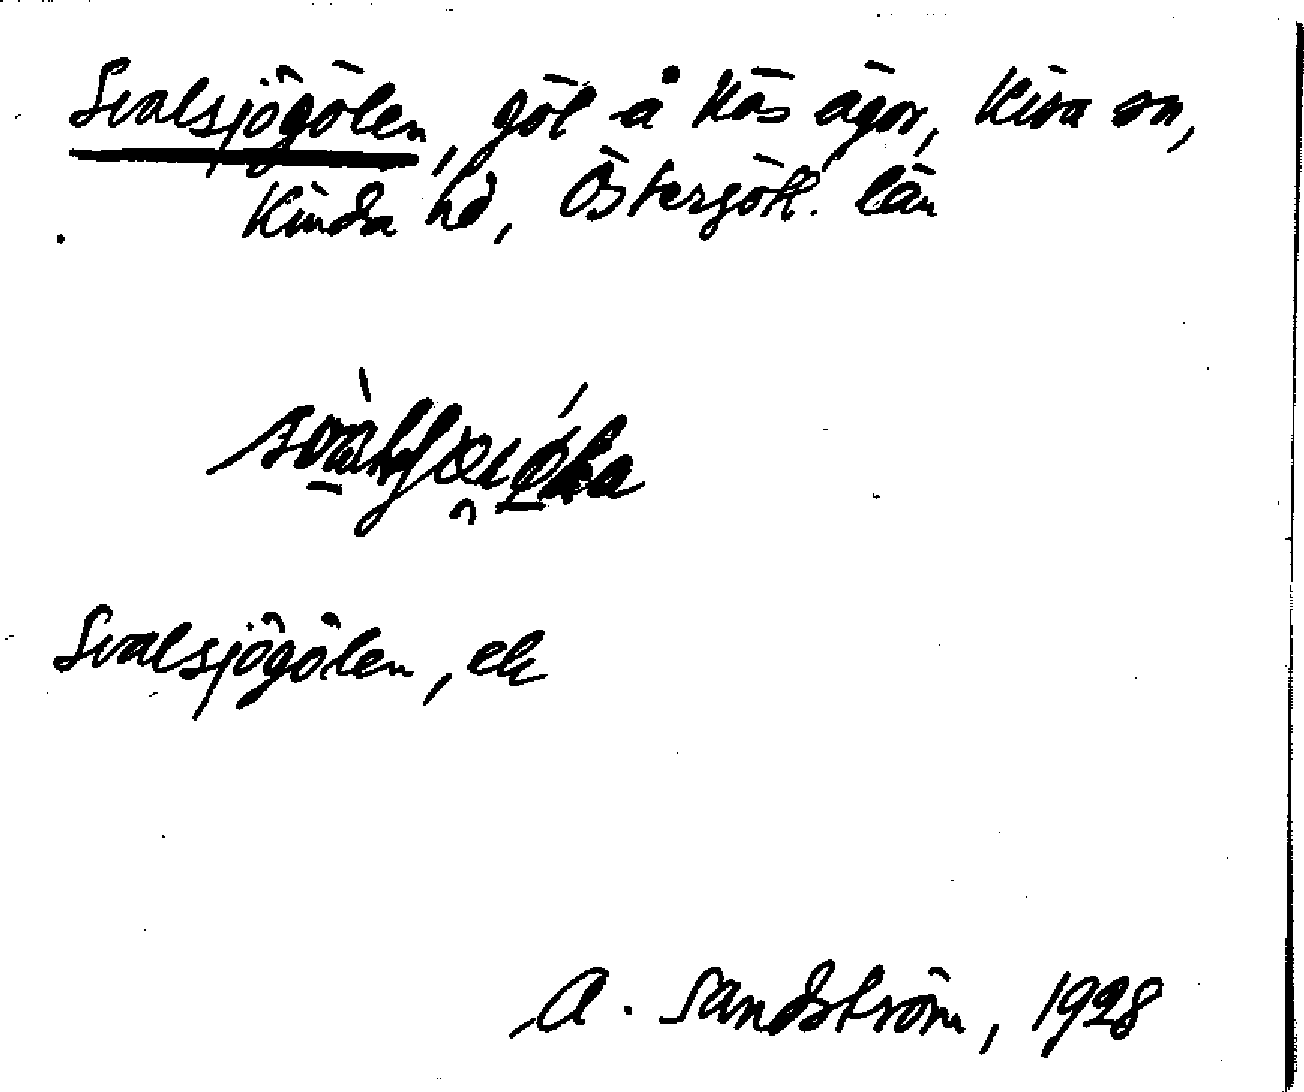 Svalsjögölen, göl å Käs ägor, Kisa sn,
Kinda hd, Östergötl. län
Svalsjögölen, ek
A. Sandström, 1928